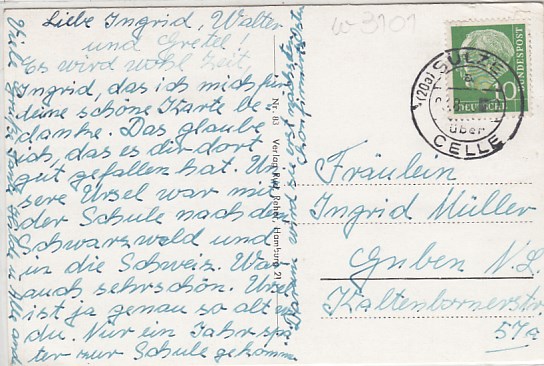 w-3101
Liebe Ingrid, Walter
und Gretel!
Es wird wohl Zeit,
Ingrid, das ich mich für
deine schöne Karte be-
danke. Das glaube
ich, das es dir dort
gut gefallen hat. Un
sere Ursel war mit
der Schule nach dem
Schwarzwald und
in die Schweiz. War
auch sehr schön. Ursel
ist ja genau so alt wie
du. Nur ein Jahr spä
ter zur Schule gekomme
Darum wird sie erst nächstes
Konfirmiert.
Viele Grüße
Nr. 83 Verlag Rud. Reher, Hamburg 21
SÜLZE
(20a)
über
CELLE
10
DEUTSCHE
BUNDESPOST
Fräulein
Ingrid Müller
Guben N.L.
Kaltenbornerstr.
57a